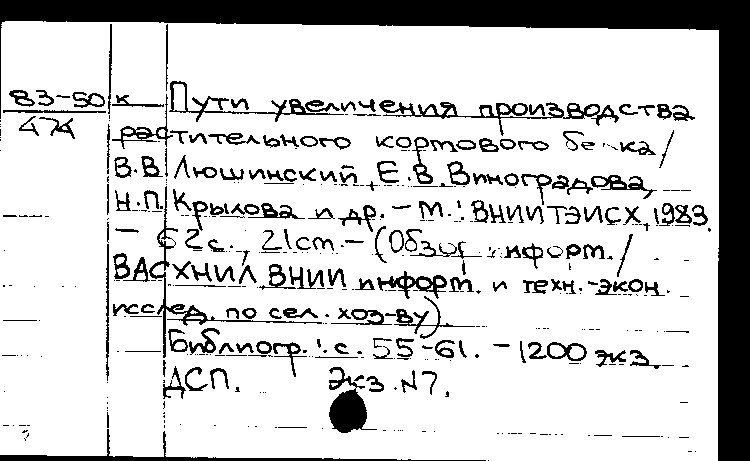 83-50 к Пути увеличения производства
474 растительного кормового белка/
В.В. Люшинский, Е.В. Виноградова,
Н.П. Крылова и др. - М.: ВНИИТЭИСХ, 1983.
- 62 с., 21 cm. - (Обзор. информ. /
ВАСХНИЛ, ВНИИ информ. и техн.-экон.
исслед. по сел. хоз-ву).
Библиогр.: с. 55-61. - 1200 экз.
ДСП. Экз. N7.